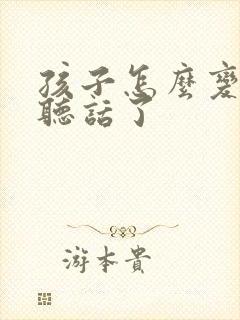 孩子怎麼變
聽話了
游本貴